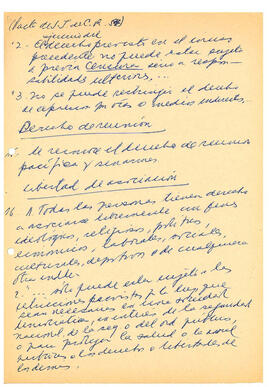 (Pacto de S.J. de C.R. 
"2. El derecho previsto en el inciso
precedente no puede estar sujeto
a previa censura sino a respon-
sabilidades ulteriores, ...
"3. No se puede restringir el derecho
de expresión por vías o medios indirectos...
Derecho de reunión
15. Se reconoce el derecho de reunión
pacífica y sin armas.
Libertad de asociación
16. 1. Todas las personas tienen derecho
a asociarse libremente con fines
ideológicos, religiosos, políticos,
económicos, laborales, sociales,
culturales, deportivos o de cualquiera
otra índole.
2. ... sólo puede estar sujeto a las
restricciones previstas p. la ley que
sean necesarias en una sociedad
democrática, en interés de la seguridad
nacional, de la seg. o del ord. público,
o para proteger la salud o la moral
públicas o los derechos o libertades de
los demás.